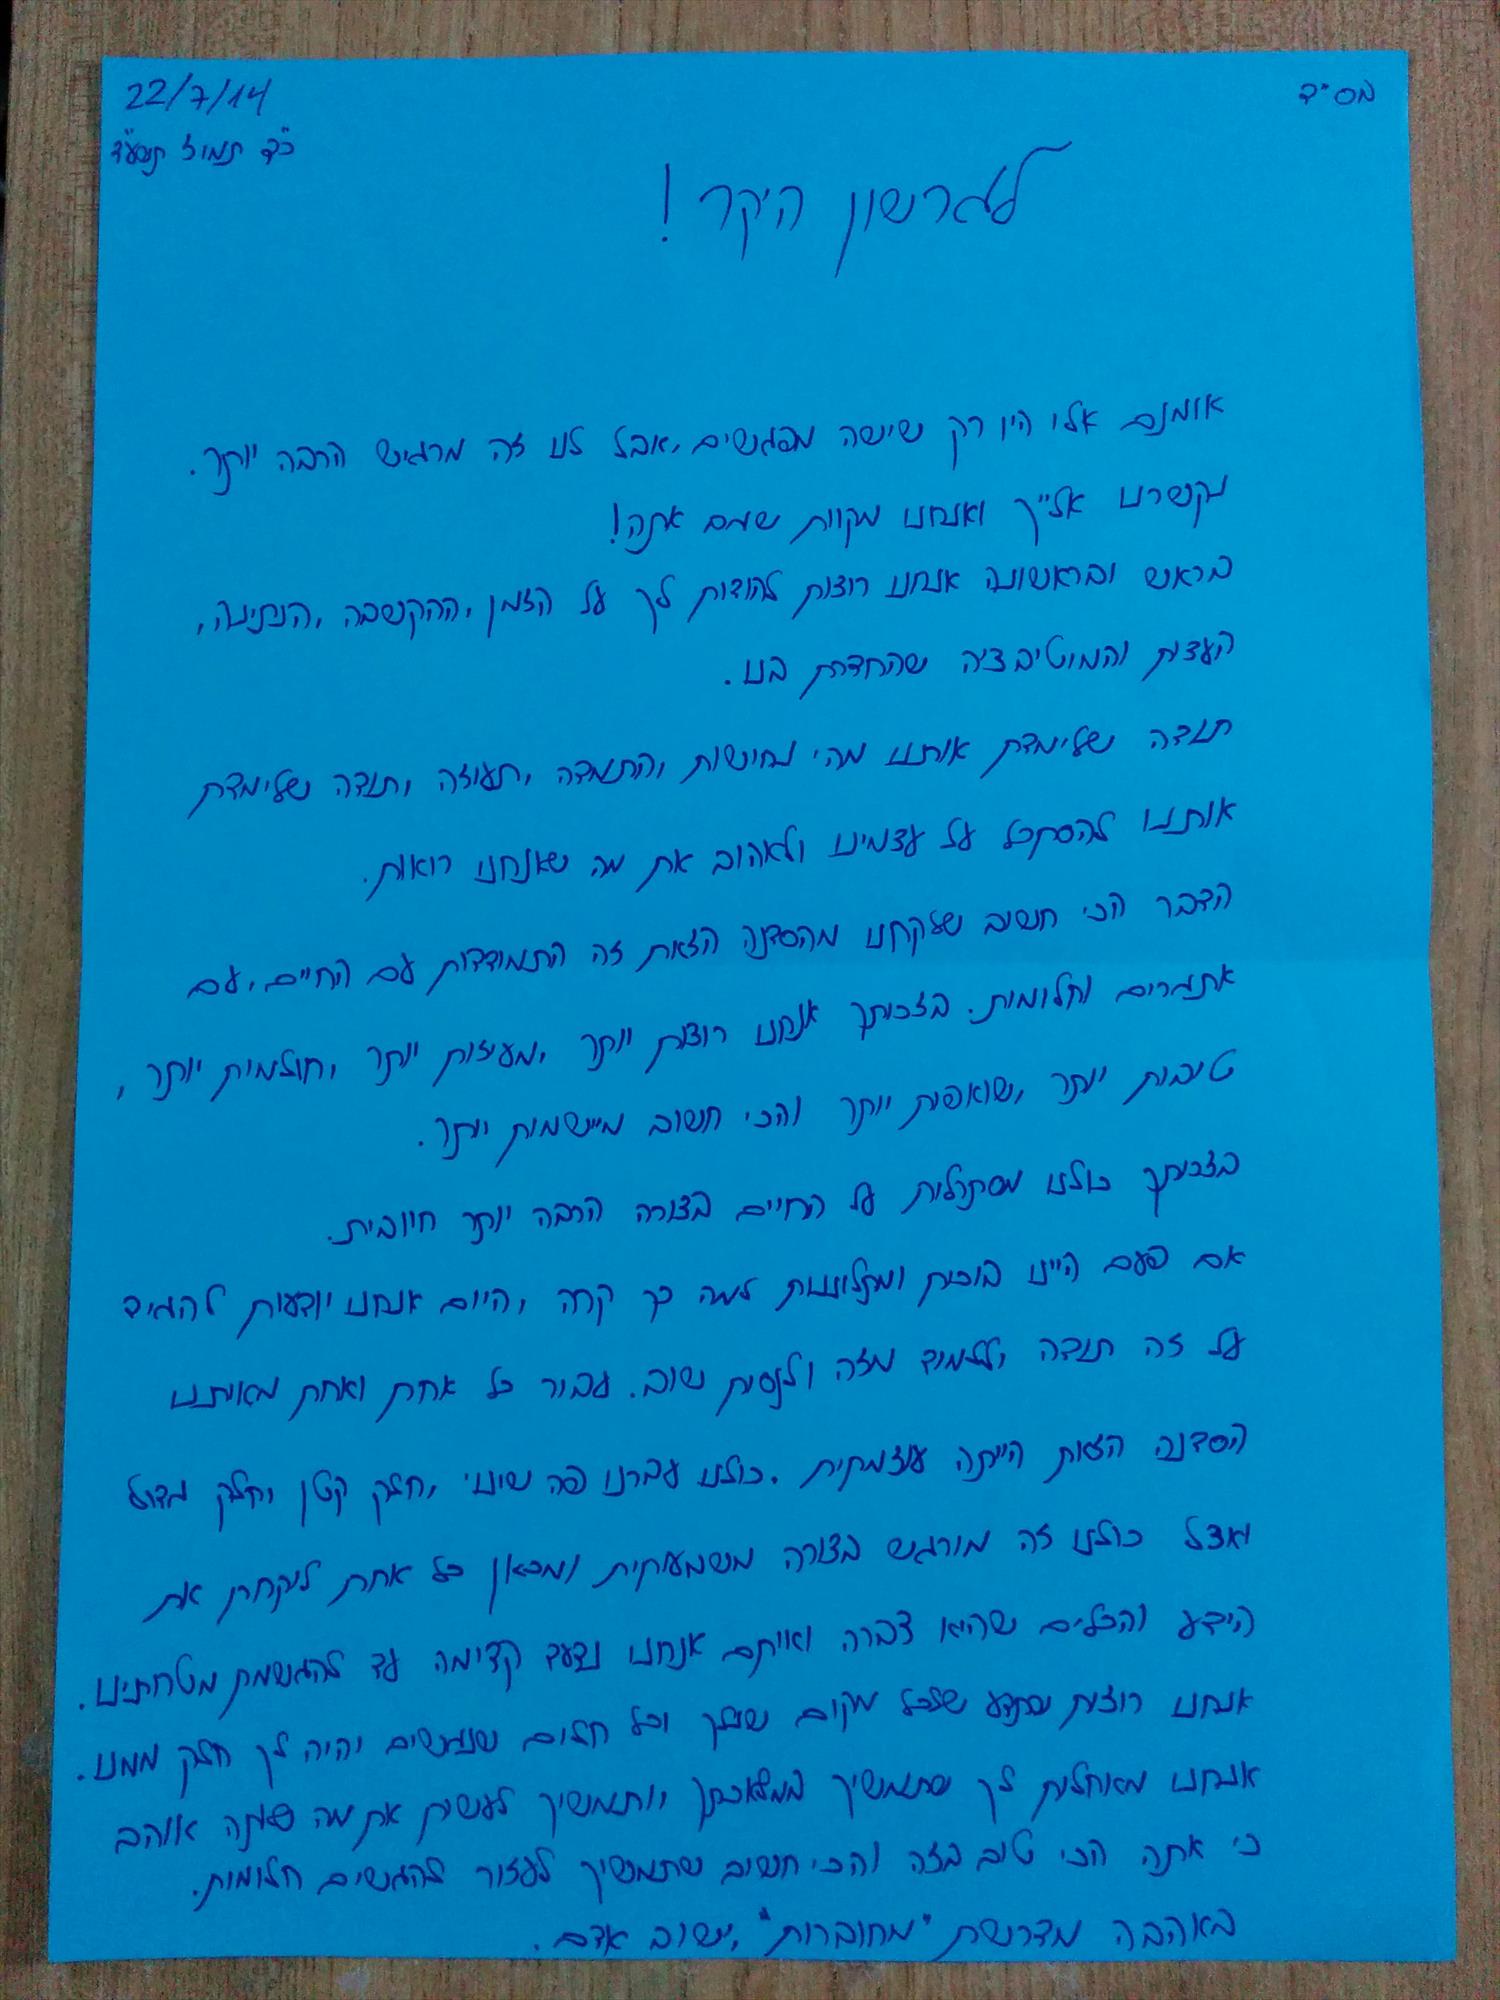 בס"ד
22/7/14
כ"ד תמוז תשע"ד
לגרשון היקר!
אומנם אלי היו רק שישה מפגשים, אבל לנו זה מרגיש הרבה יותר.
נקשרנו אלייך ואנחנו מקוות שגם אתה!
בראש ובראשונה אנחנו רוצות להודות לך על הזמן, ההקשבה, הנתינה,
העצות והמוטיבציה שהחדרת בנו.
תודה שלימדת אותנו מהי נחישות, התמדה, תעוזה, ותודה שלימדת
אותנו להסתכל על עצמינו ולאהוב את מה שאנחנו רואות.
הדבר הכי חשוב שלקחנו מהסדנה הזאת זה התמודדות עם החיים, עם
אתגרים וחלומות. בזכותך אנחנו רוצות יותר, מעיזות יותר, חולמות יותר,
טובות יותר, שואפות יותר והכי חשוב מיישמות יותר.
בזכותך כולנו מסתכלות על החיים בצורה הרבה יותר חיובית.
אם פעם היינו בוכות ומתלוננות למה כך קרה, היום אנחנו יודעות להגיד
על זה תודה, ללמוד מזה ולנסות שוב. עבור כל אחת ואחת מאיתנו
הסדנה הזאת הייתה עוצמתית. כולנו עברנו פה שינוי, חלק קטן, חלק גדול
אצל כולנו זה מורגש בצורה משמעותית ומכאן כל אחת לוקחת את
הידע והכלים שהיא צברה ואיתם אנחנו נצעד קדימה עד להגשמת מטרותינו.
אנחנו רוצות שתדע שלכל מקום שנלך וכל חלום שנגשים יהיה לך חלק ממנו.
אנחנו מאחלות לך שתמשיך במלאכתך, ותמשיך לעשות את מה שאתה אוהב
כי אתה הכי טוב בזה והכי חשוב שתמשיך לעזור להגשים חלומות.
באהבה מדרשת "מחוברות", ישוב אדם.